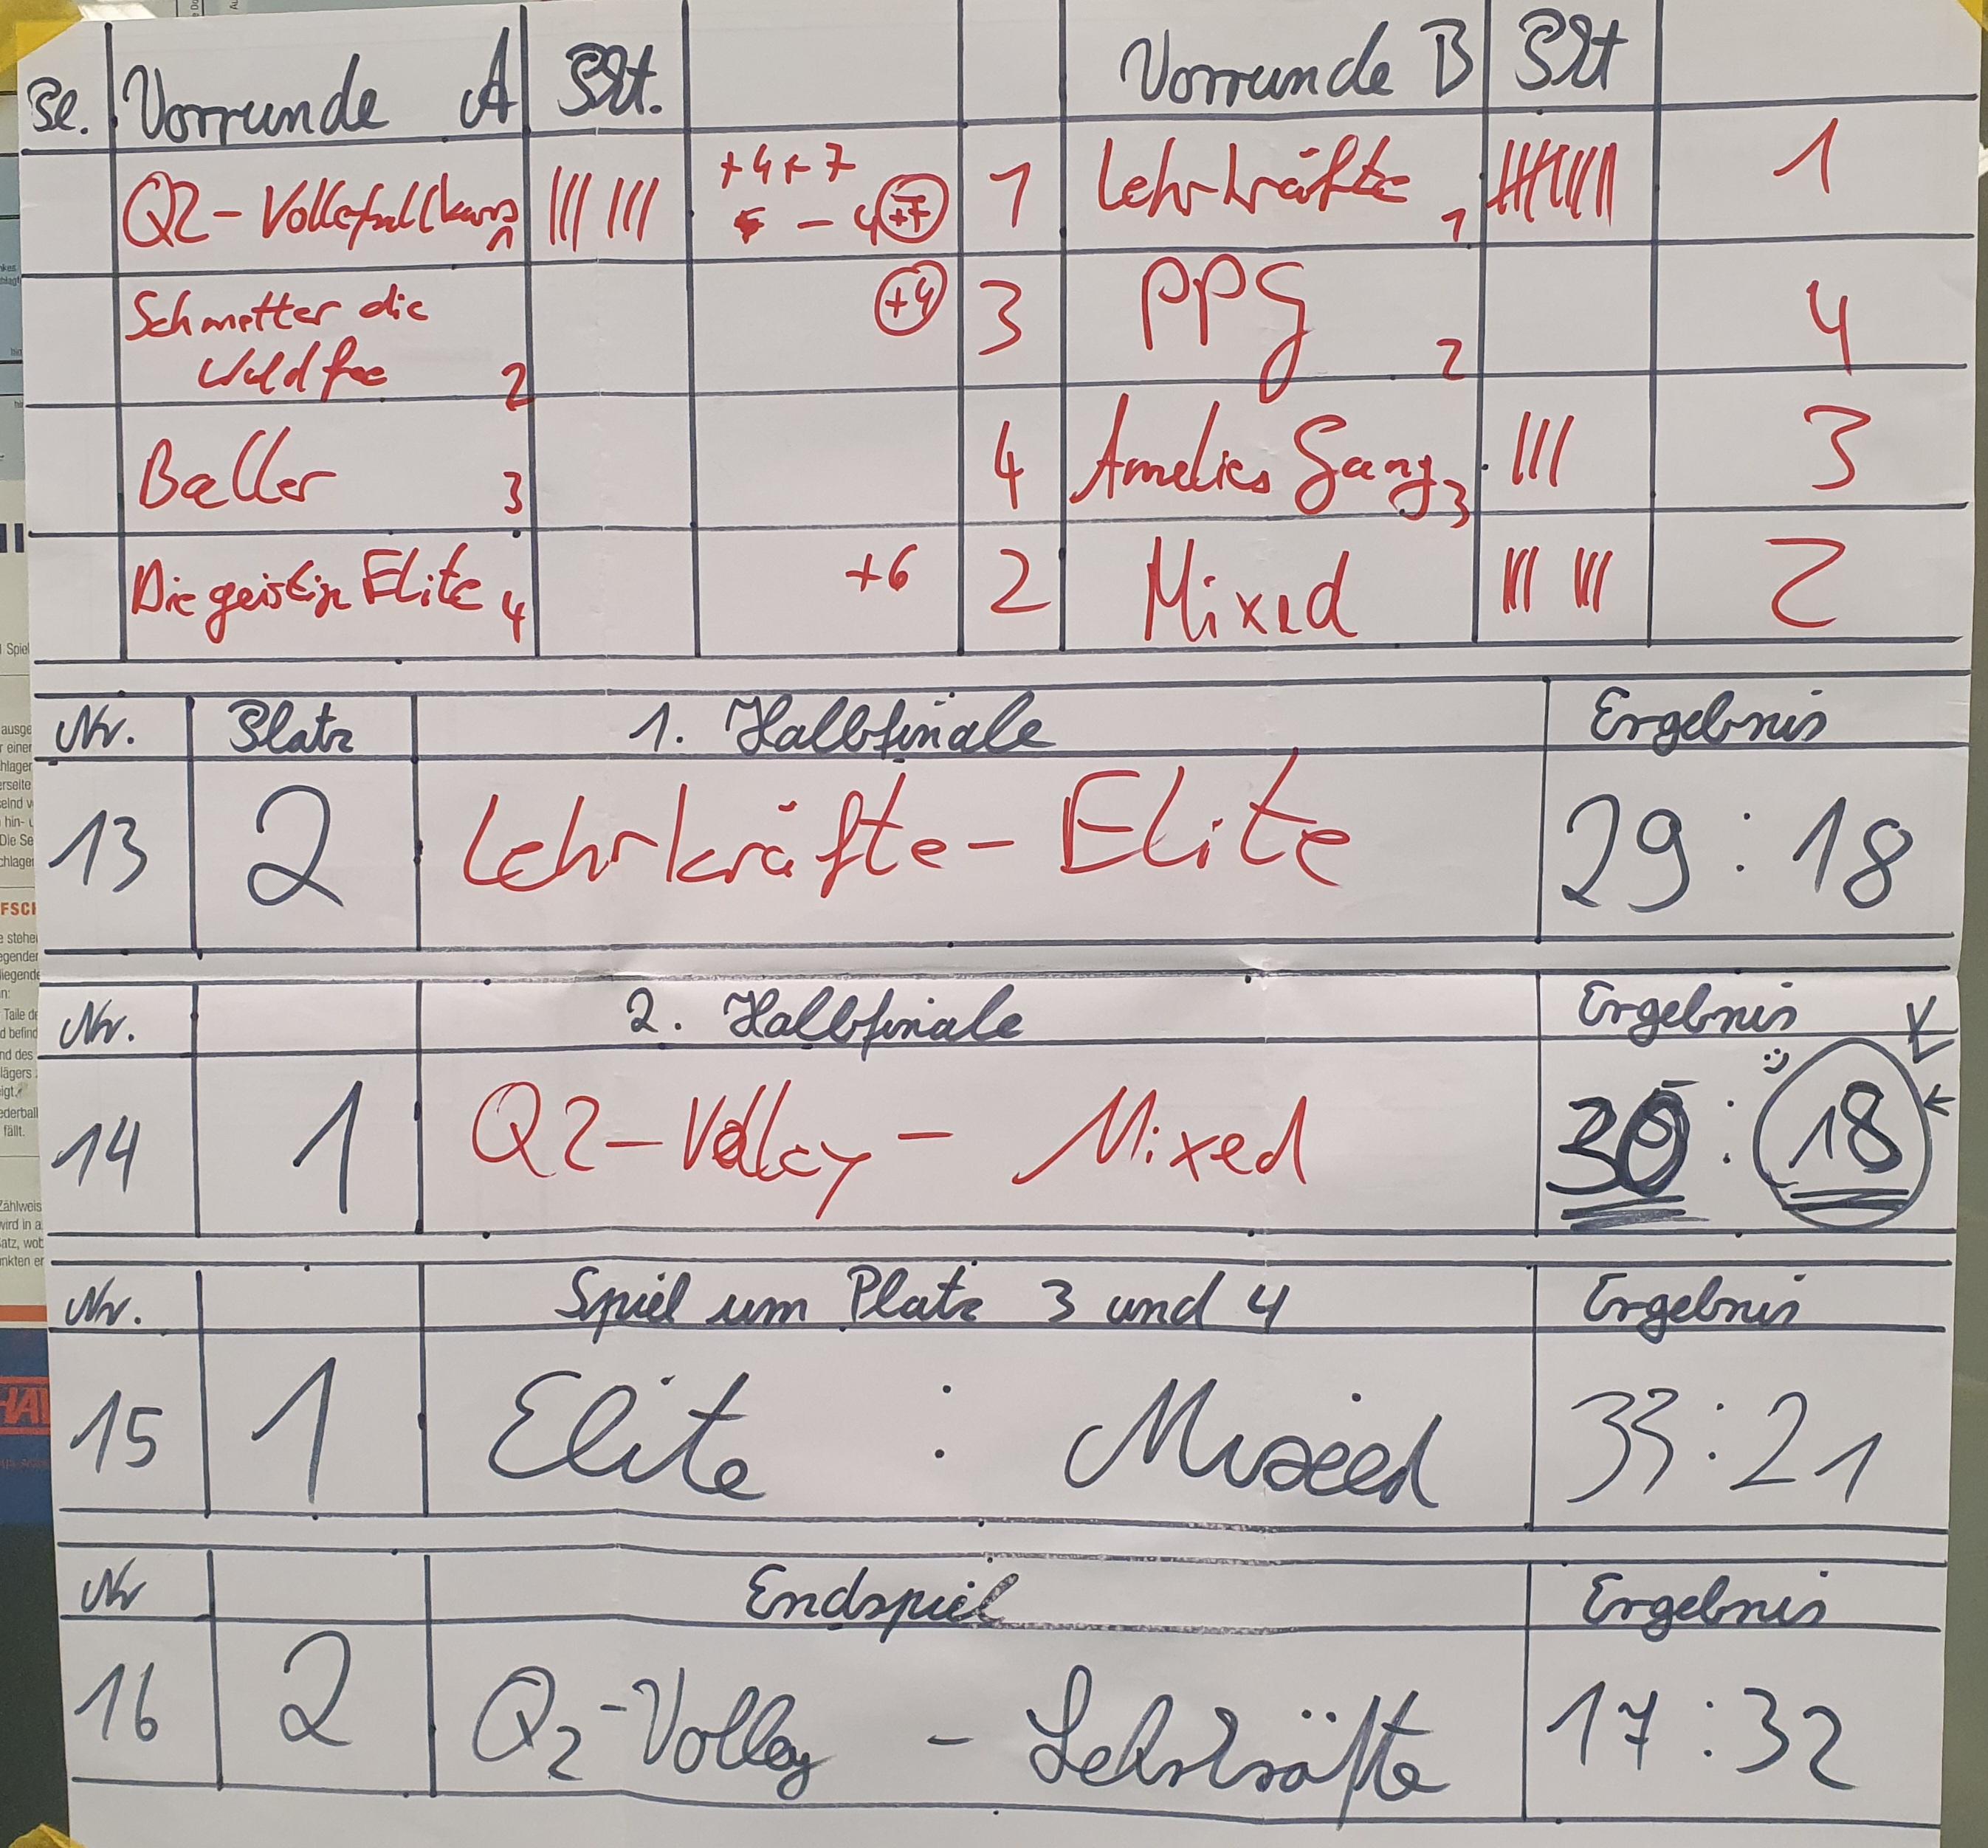 Vorrunde A Pkt. Vorrunde B Pkt
Q2-Volleyballkurs 1 ||| ||| +4+7 -4 +7 1 Lehrkräfte 1 1
Schmetter die +4 3 PPG 2 4
Waldfee 2
Baller 3 4 Amelies Gang 3 ||| 3
Die geistige Elite 4 +6 2 Mixed ||| ||| 2
Nr. Platz 1. Halbfinale Ergebnis
13 2 Lehrkräfte-Elite 29:18
Nr. 2. Halbfinale Ergebnis
14 1 Q2-Volley - Mixed 30:18
Nr. Spiel um Platz 3 und 4 Ergebnis
15 1 Elite : Mixed 33:21
Nr Endspiel Ergebnis
16 2 Q2-Volley - Lehrkräfte 17:32